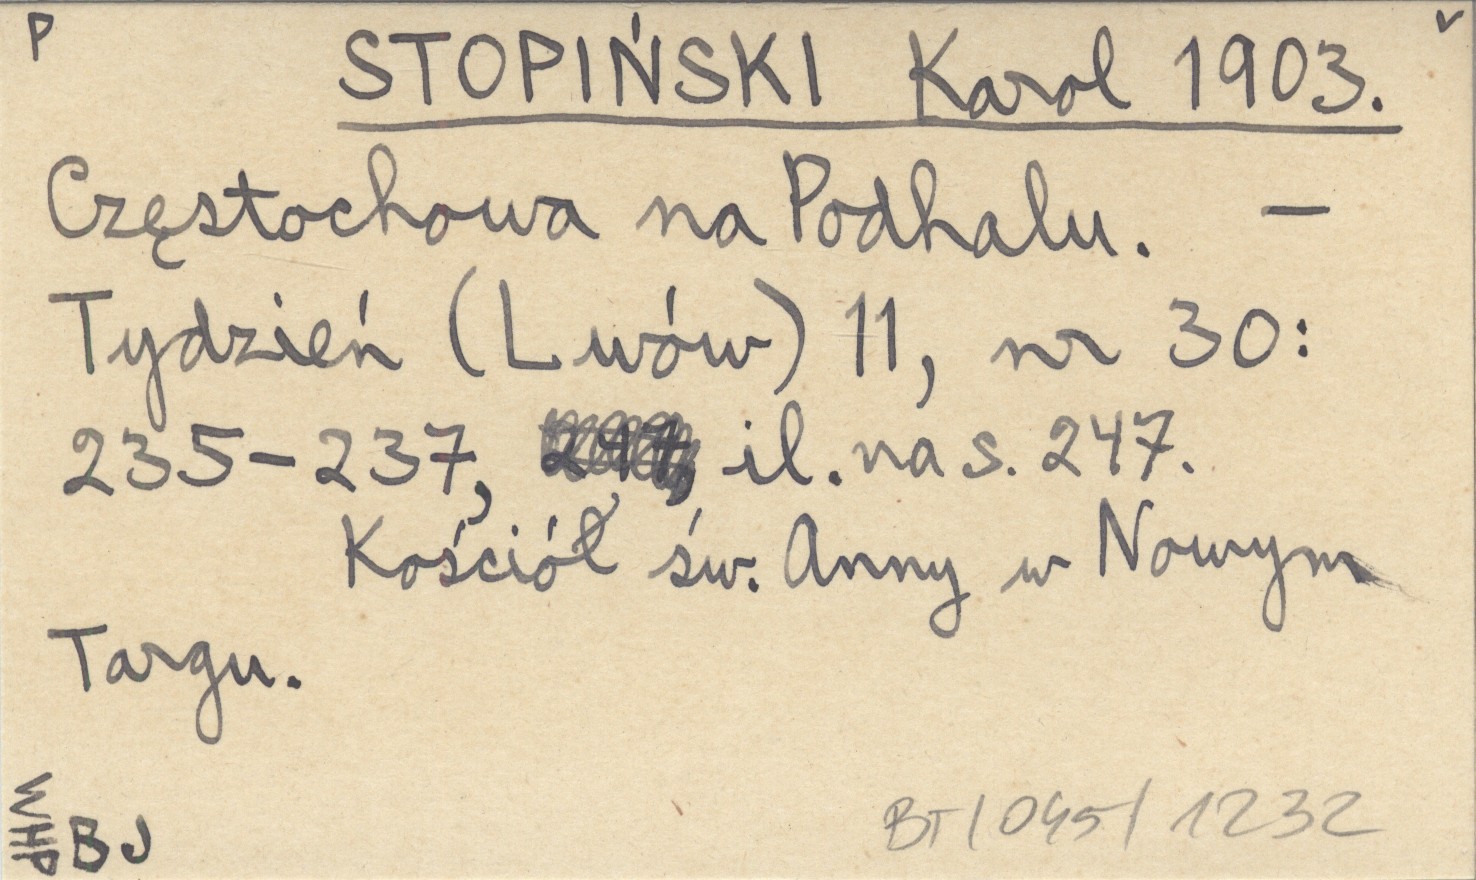 P
v
STOPIŃSKI Karol 1903.
Częstochowa na Podhalu. –
Tydzień (Lwów) 11, nr 30:
235–237, il. na s. 247.
Kościół św. Anny w Nowym
Targu.
WHP
BJ
BT/045/1232